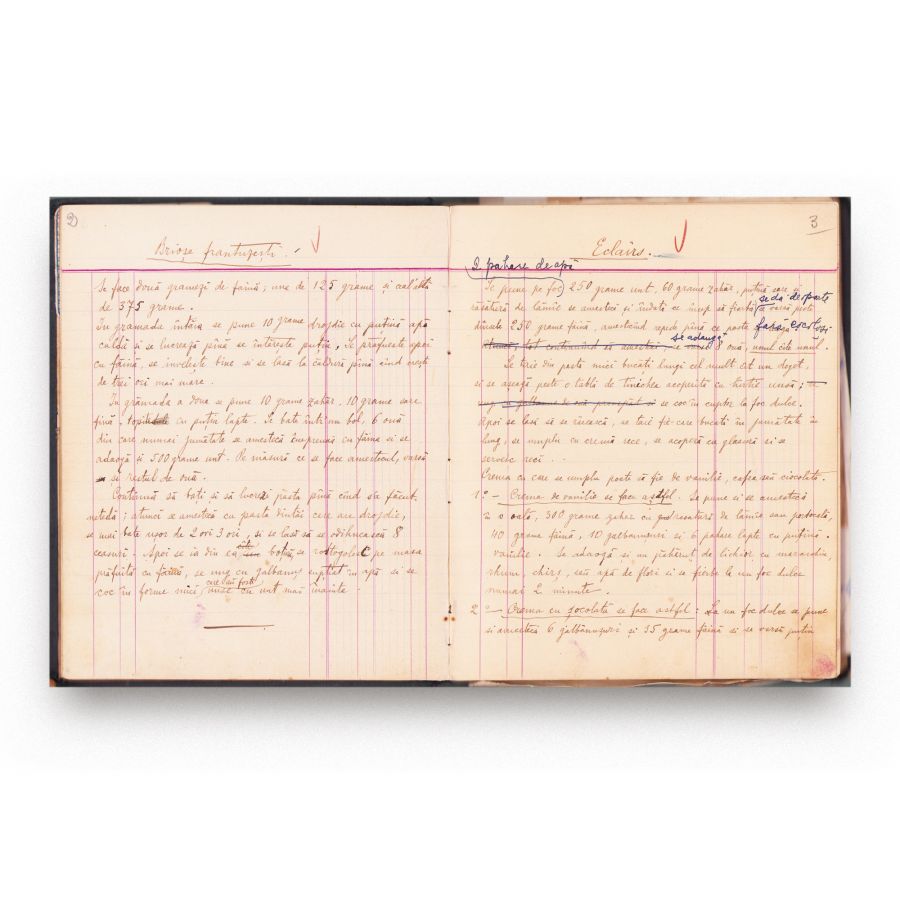 2
Brioșe franțuzești.
Se face două grămezi de făină; una de 125 grame și cealaltă
de 375 grame.
În grămada întâia se pune 10 grame drojdie cu puțină apă
caldă și se lucrează pînă se întărește puțin, Se presară apoi
cu făină, se învelește bine și se lasă la căldură pînă cînd crește
de trei ori mai mare.
În grămada a doua se pune 10 grame zahăr, 10 grame sare
fină, cu puțin lapte. Se bate într'un bol, 6 ouă
din care numai jumătate se amestecă împreună cu făina și se
adaogă și 500 grame unt. Pe măsură ce se face amestecul, varsă
și restul de ouă.
Continuă să bați și să lucrezi pasta pînă cînd s'a făcut
netedă; atunci se amestecă cu pasta dintâi care are drojdie,
se mai bate ușor de 2 ori 3 ori, și se lasă să se odihnească 8
ceasuri. Apoi se ia din ea cîte botuș, se rostogolesc pe masa
prăfuită cu făină, se ung cu gălbenuș subțiat în apă și se
coc în forme mici, care au fost unse cu unt mai înainte.
3
Eclairs.
2 pahare de apă
Se pune pe foc 250 grame unt, 60 grame zahăr, puțină sare și
răsătură de lămîie se amestecă și îndată ce încep să fiarbă se dă deoparte se varsă peste
dînsele 250 grame făină, amestecînd repede pînă ce pasta fără cocoloși
se adaugă 8 ouă, unul cîte unul.
Se taie din pastă mici bucăți lungi cel mult cît un deget,
și se așează peste o tablă de tinichea acoperită cu hîrtie unsă;
se coc în cuptor la foc dulce.
Apoi se lasă să se răcească, se taie fie-care bucată în jumătate în
lung, se umplu cu cremă rece, se acoperă cu glasură și se
servesc reci...
Crema cu care se umplu poate să fie de vanilie, cafea sau ciocolată.
1º – Crema de vanilie se face astfel. Se pune și se amestecă
în o oală, 300 grame zahăr cu răsătură de lămîie sau portocală,
40 grame făină, 10 gălbenușuri și 6 pahare lapte cu puțină
vanilie. Se adaogă și un păhăruț de lichior cu maraschin,
rhum, chirș, sau apă de flori și se fierbe la un foc dulce
numai 2 minute.
2º – Crema cu șocolată se face astfel: La un foc dulce se pune
și amestecă 6 gălbenușuri și 35 grame făină și se varsă puțin